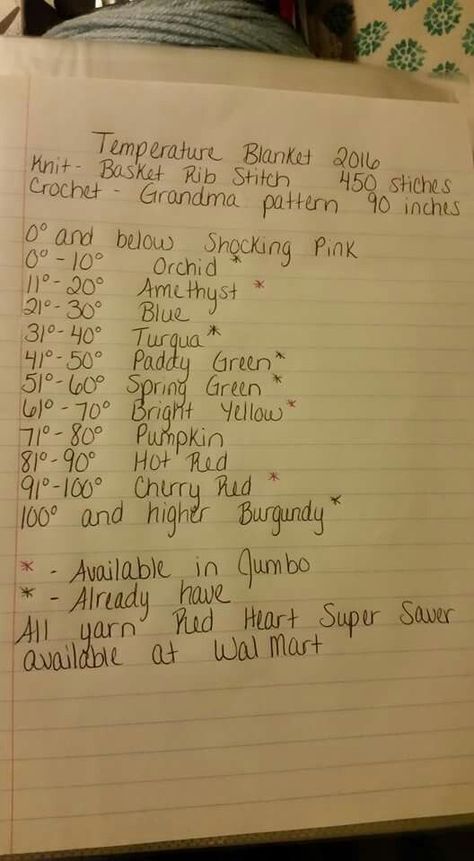 Temperature Blanket 2016
Knit - Basket Rib Stitch 450 stiches
Crochet - Grandma pattern 90 inches
0° and below Shocking Pink
0° - 10° Orchid *
11° - 20° Amethyst *
21° - 30° Blue
31° - 40° Turqua *
41° - 50° Paddy Green *
51° - 60° Spring Green *
61° - 70° Bright Yellow *
71° - 80° Pumpkin
81° - 90° Hot Red
91° - 100° Cherry Red *
100° and higher Burgundy *
* - Available in Jumbo
* - Already have
All yarn Red Heart Super Saver
available at Wal Mart